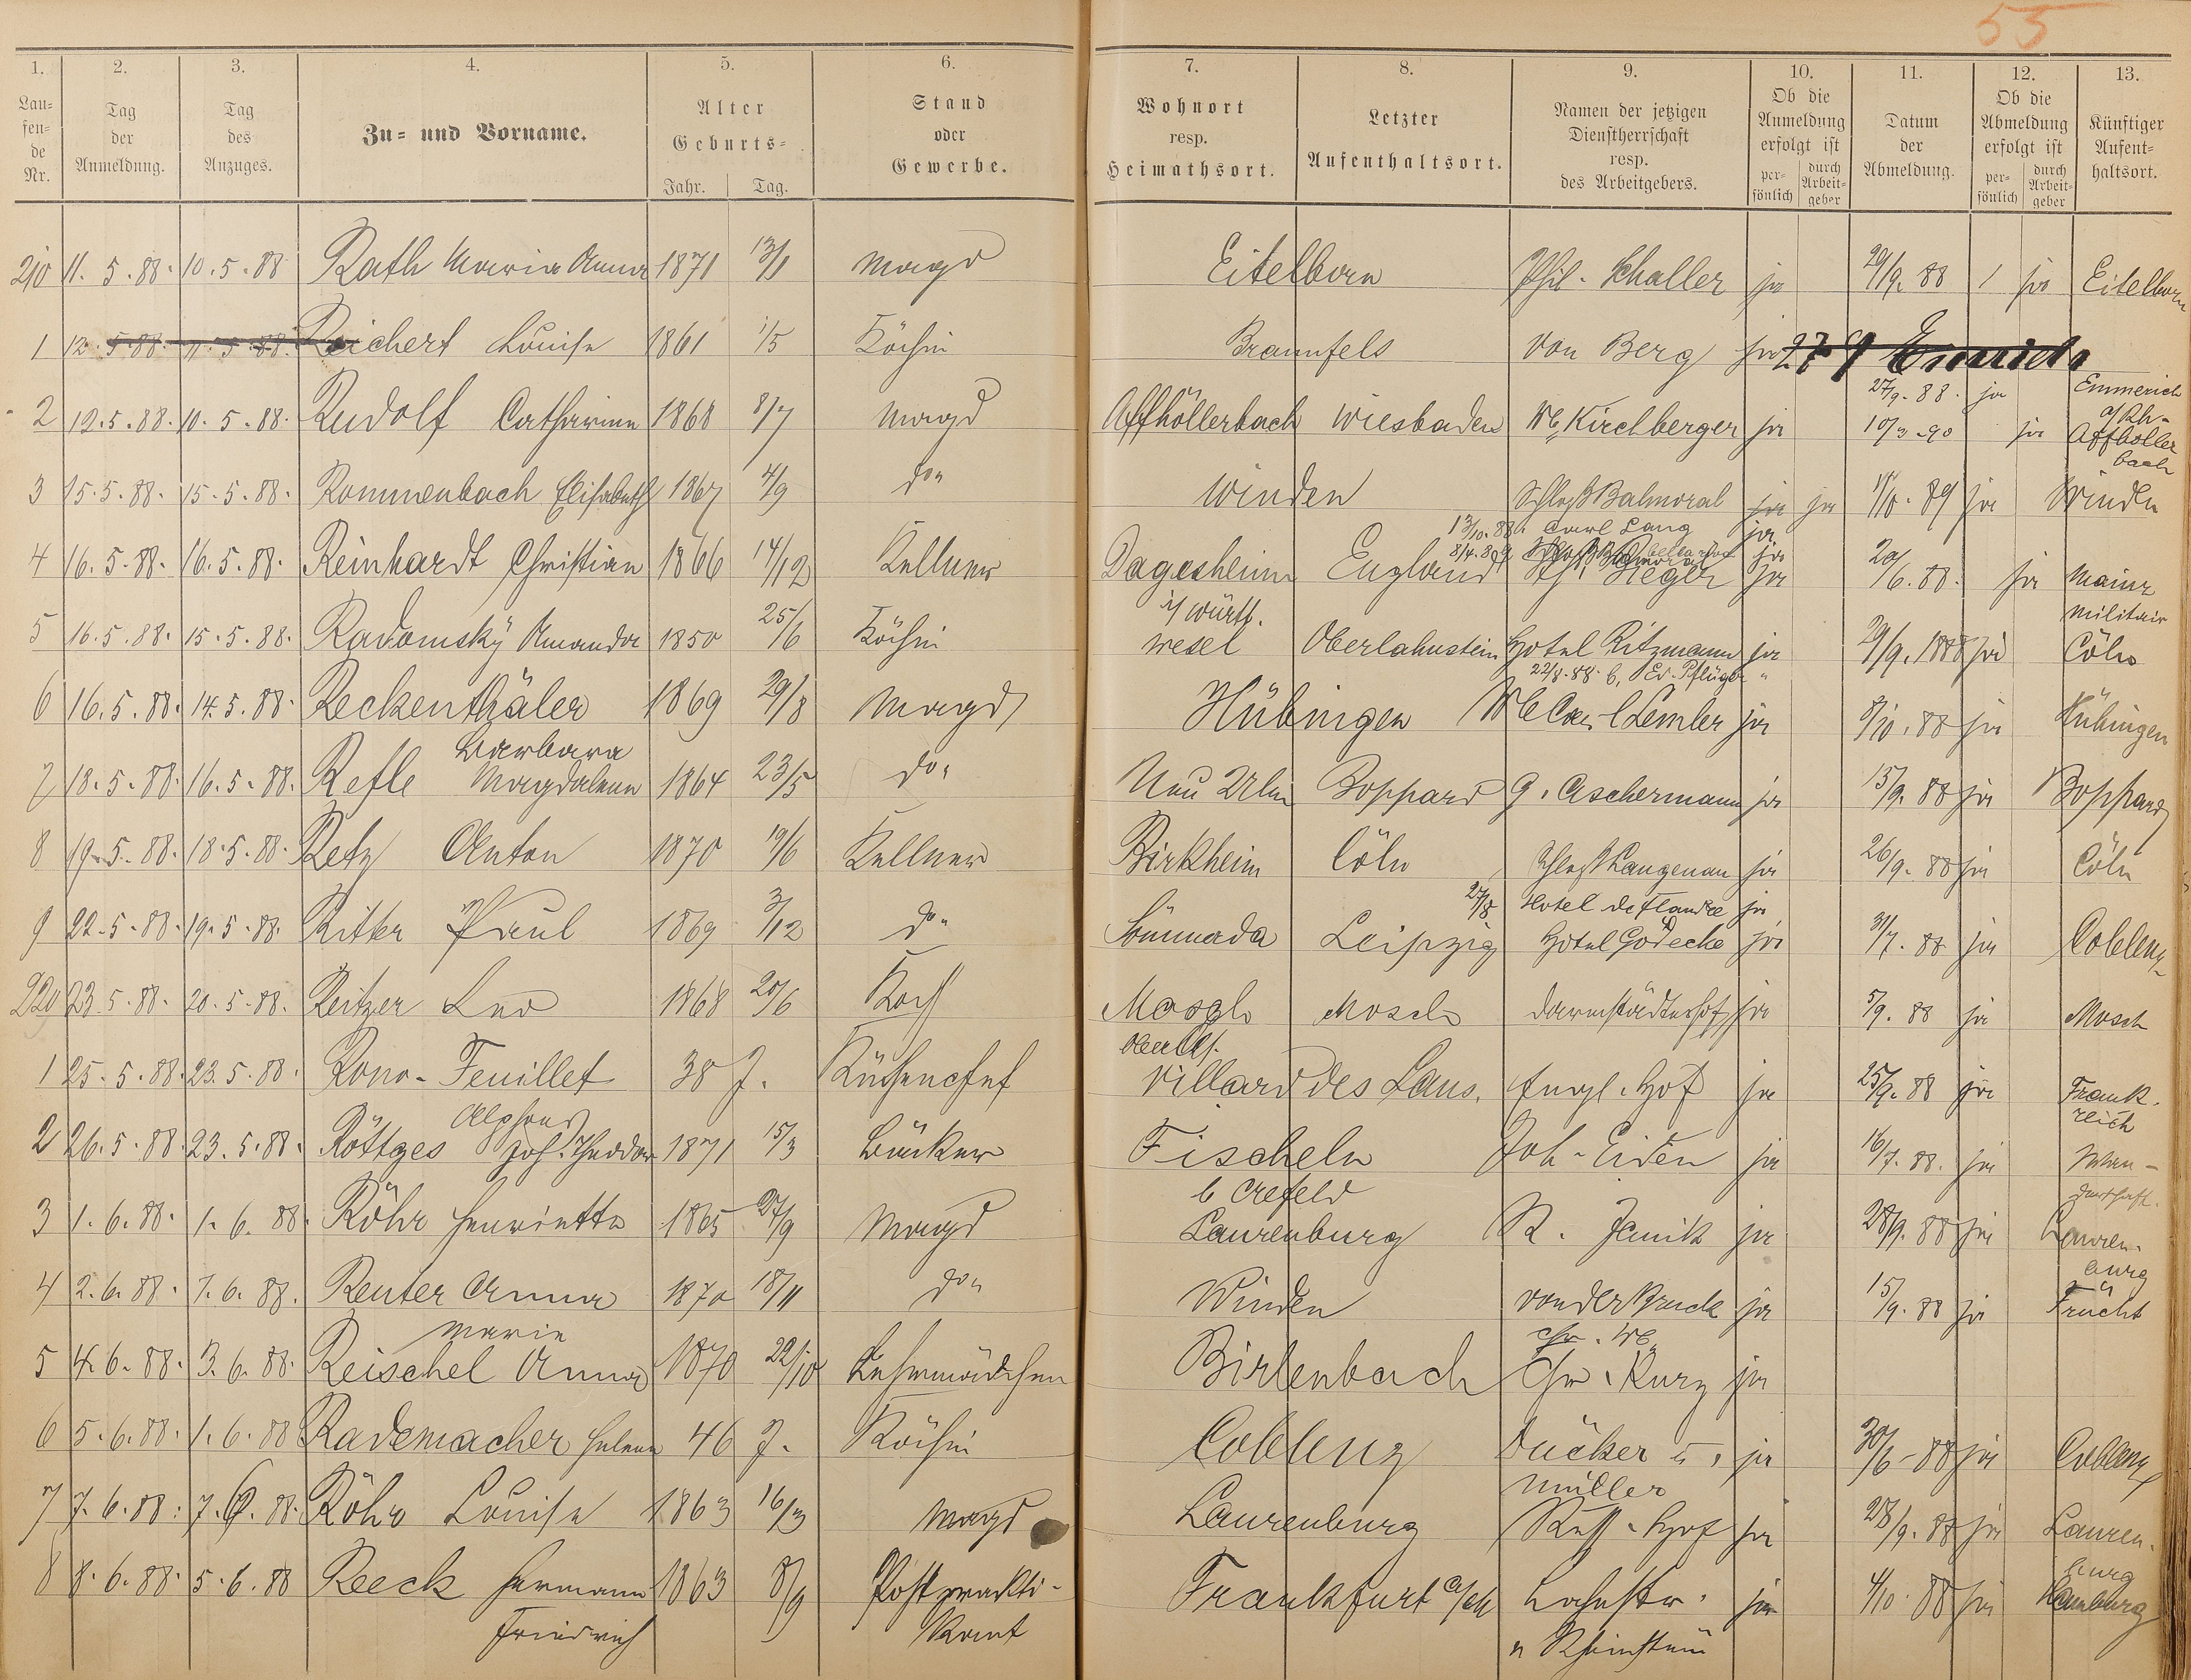 55
1. 2. 3. 4. 5. 6. 7. 8. 9. 10. 11. 12. 13.
Lau=
fen=
de
Nr.
Tag
der
Anmeldung.
Tag
des
Anzuges.
Zu= und Vorname.
Alter
Geburts=
Jahr. Tag.
Stand
oder
Gewerbe.
Wohnort
resp.
Heimathsort.
Letzter
Aufenthaltsort.
Namen der jetzigen
Dienstherrschaft
resp.
des Arbeitgebers.
Ob die
Anmeldung
erfolgt ist
per=
sönlich
durch
Arbeit=
geber
Datum
der
Abmeldung.
Ob die
Abmeldung
erfolgt ist
per=
sönlich
durch
Arbeit=
geber
Künftiger
Aufent=
haltsort.
210 11. 5. 88. 10. 5. 88 Rath Maria Anna 1871 13/1 Magd Eitelborn Phil. Schaller ja 29/9. 88 ja Eitelborn
1 12. 5. 88. 11. 5. 88. Reichert Louise 1861 1/5 Köchin Braunfels von Berg ja
27/9. 88. ja Emmerich
a/Rh.
2 12. 5. 88. 10. 5. 88. Rudolf Catharina 1868 8/7 Magd Affhöllerbach Wiesbaden We. Kirchberger ja 10/3. 90 ja Affholler
bach
3 15. 5. 88. 15. 5. 88. Rommenbach Elisabeth 1867 4/9 do. Winden Schloß Balmoral ja ja 11/10. 89 ja Winden
13/10. 88. Carl Lang ja
8/4. 89 ja
4 16. 5. 88. 16. 5. 88. Reinhardt Christian 1866 14/12 Kellner Dagesheim England Rieger ja 20/6. 88. ja Mainz
i/ Württ. Militair
5 16. 5. 88. 15. 5. 88. Radomsky Amanda 1850 25/6 Köchin Wesel Oberlahnstein Hotel Ritzmann ja 29/9. 1888 ja Cöln
22/8. 88. b. Ed. Pflüger "
6 16. 5. 88. 14. 5. 88. Reckenthäler 1869 29/8 Magd Hübingen We Carl Lemler ja 8/10. 88 ja Hübingen
Barbara
7 18. 5. 88. 16. 5. 88. Refle Magdalena 1864 23/5 do. Neu Ulm Boppard G. Aschermann ja 15/9. 88 ja Boppard
8 19. 5. 88. 18. 5. 88. Retz Anton 1870 19/6 Kellner Birkheim Cöln Schloß Langenau ja 26/9. 88 ja Cöln
27/8 Hotel de Flandre ja
9 22. 5. 88. 19. 5. 88. Ritter Paul 1869 3/12 do. Sömmada Leipzig Hotel Gödecke ja 31/7. 88 ja Coblenz
220 23. 5. 88. 20. 5. 88. Reitzer Leo 1868 20/6 Koch Mosch Mosch Darmstädterhof ja 5/9. 88 ja Mosch
1 25. 5. 88. 23. 5. 88. Rono-Feuillet 38 J. Küchenchef Villard des Lans. Engl. Hof ja 25/9. 88 ja Frank.
reich
Alphons
2 26. 5. 88. 23. 5. 88. Röttges Jos. Theodor 1871 15/3 Bäcker Fischeln Joh. Eiden ja 16/7. 88. ja Wan-
b Crefeld derschaft.
3 1. 6. 88. 1. 6. 88. Röhr Henriette 1865 27/9 Magd Laurenburg R. Janik ja 28/9. 88 ja Lauren.
burg
4 2. 6. 88. 1. 6. 88. Reuter Anna 1870 18/11 do. Winden von der Bruck ja 15/9. 88 ja Frücht
Marie Chr. We.
5 4. 6. 88. 3. 6. 88. Reischel Anna 1870 22/10 Lehrmädchen Birlenbach Chr. Kurz ja
6 5. 6. 88. 1. 6. 88 Rademacher Helena 46 J. Köchin Coblenz Dücker u. ja 30/6. 88 ja Coblenz
Müller
7 7. 6. 88. 7. 6. 88. Röhr Louise 1863 16/3 Magd Laurenburg Russ. Hof ja 28/9. 88 ja Lauren.
burg
8 8. 6. 88. 5. 6. 88 Reeck Hermann 1863 8/9 Postprakti- Frankfurt a/M Lahnstr. ja 4/10. 88 ja Hamburg
Friedrich kant n Rheinstein